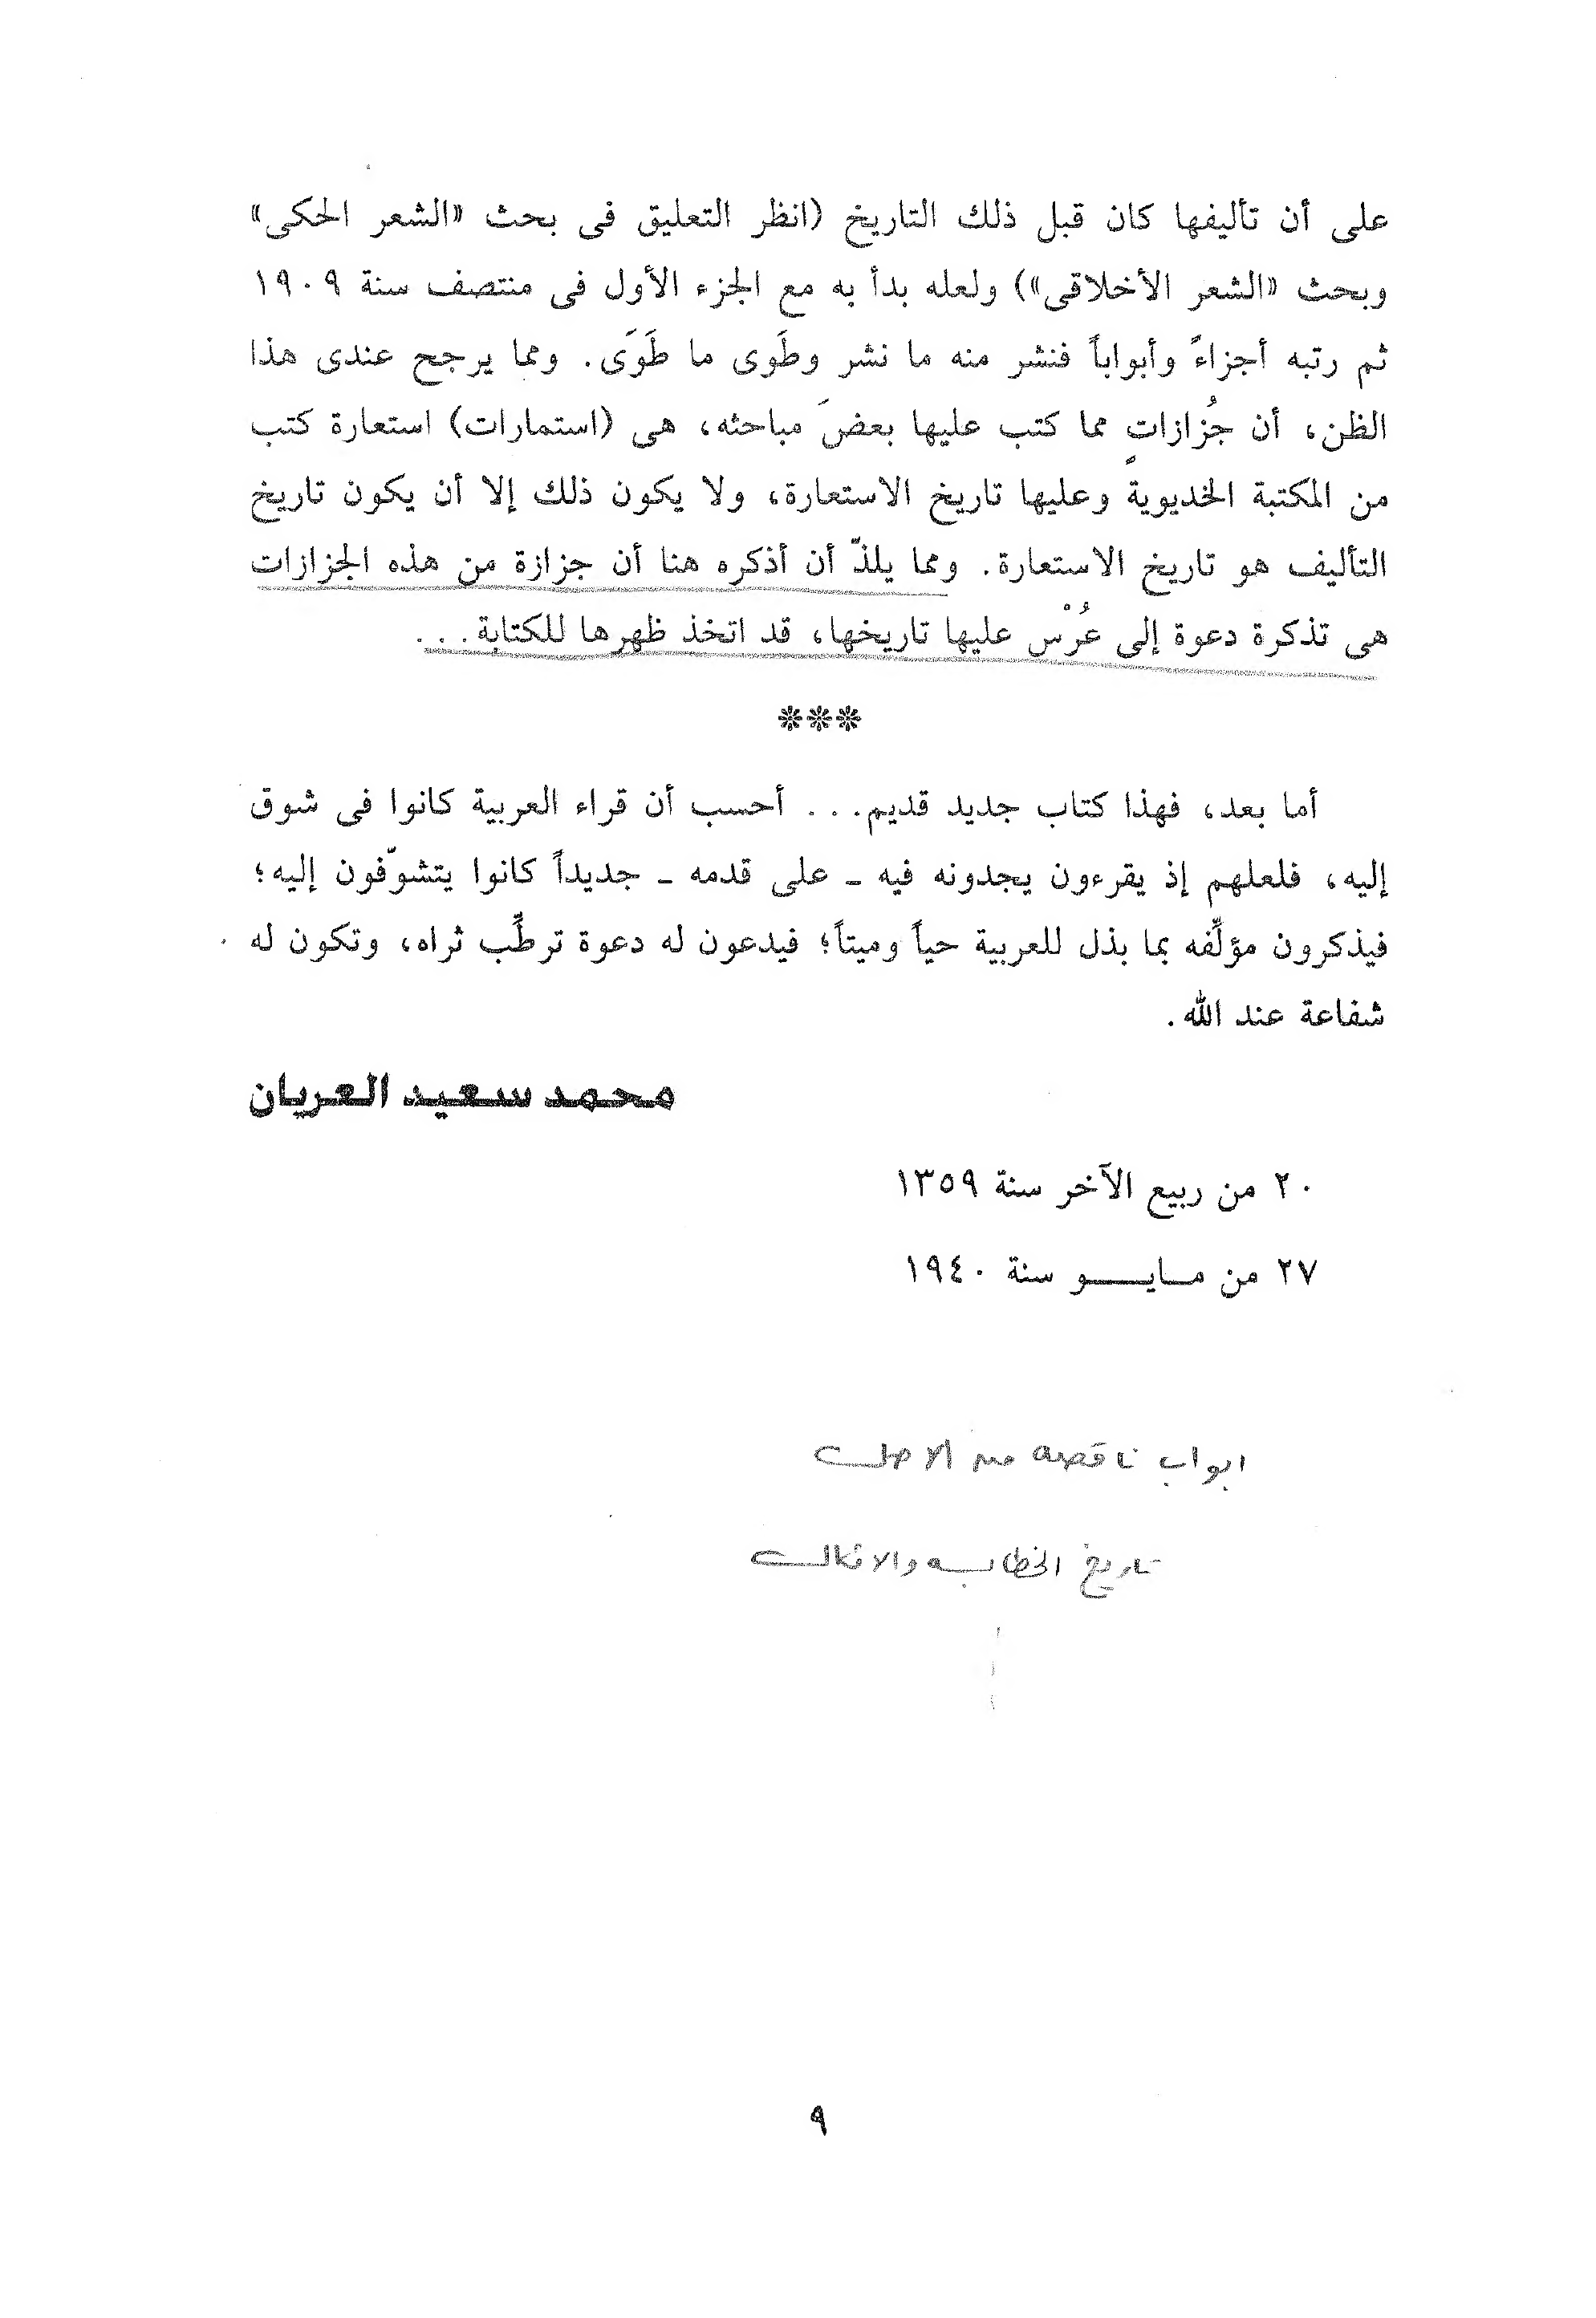 على أن تأليفها كان قبل ذلك التاريخ (انظر التعليق فى بحث «الشعر الحكى»
وبحث «الشعر الأخلاقى») ولعله بدأ به مع الجزء الأول فى منتصف سنة ١٩٠٩
ثم رتبه أجزاءً وأبواباً فنشر منه ما نشر وطَوى ما طَوَى. ومما يرجح عندى هذا
الظن، أن جُزازاتٍ مما كتب عليها بعضَ مباحثه، هى (استمارات) استعارة كتب
من المكتبة الخديوية وعليها تاريخ الاستعارة، ولا يكون ذلك إلا أن يكون تاريخ
التأليف هو تاريخ الاستعارة. ومما يلذّ أن أذكره هنا أن جزازة من هذه الجزازات
هى تذكرة دعوة إلى عُرْس عليها تاريخها، قد اتخذ ظهرها للكتابة...
***
أما بعد، فهذا كتاب جديد قديم... أحسب أن قراء العربية كانوا فى شوق
إليه، فلعلهم إذ يقرءون يجدونه فيه - على قدمه - جديداً كانوا يتشوّفون إليه؛
فيذكرون مؤلِّفه بما بذل للعربية حياً وميتاً؛ فيدعون له دعوة ترطِّب ثراه، وتكون له
شفاعة عند الله.
محمد سعيد العريان
٢٠ من ربيع الآخر سنة ١٣٥٩
٢٧ من مايو سنة ١٩٤٠
ابواب ناقصه من الاصل
تاريخ الخطابه والامثال
٩